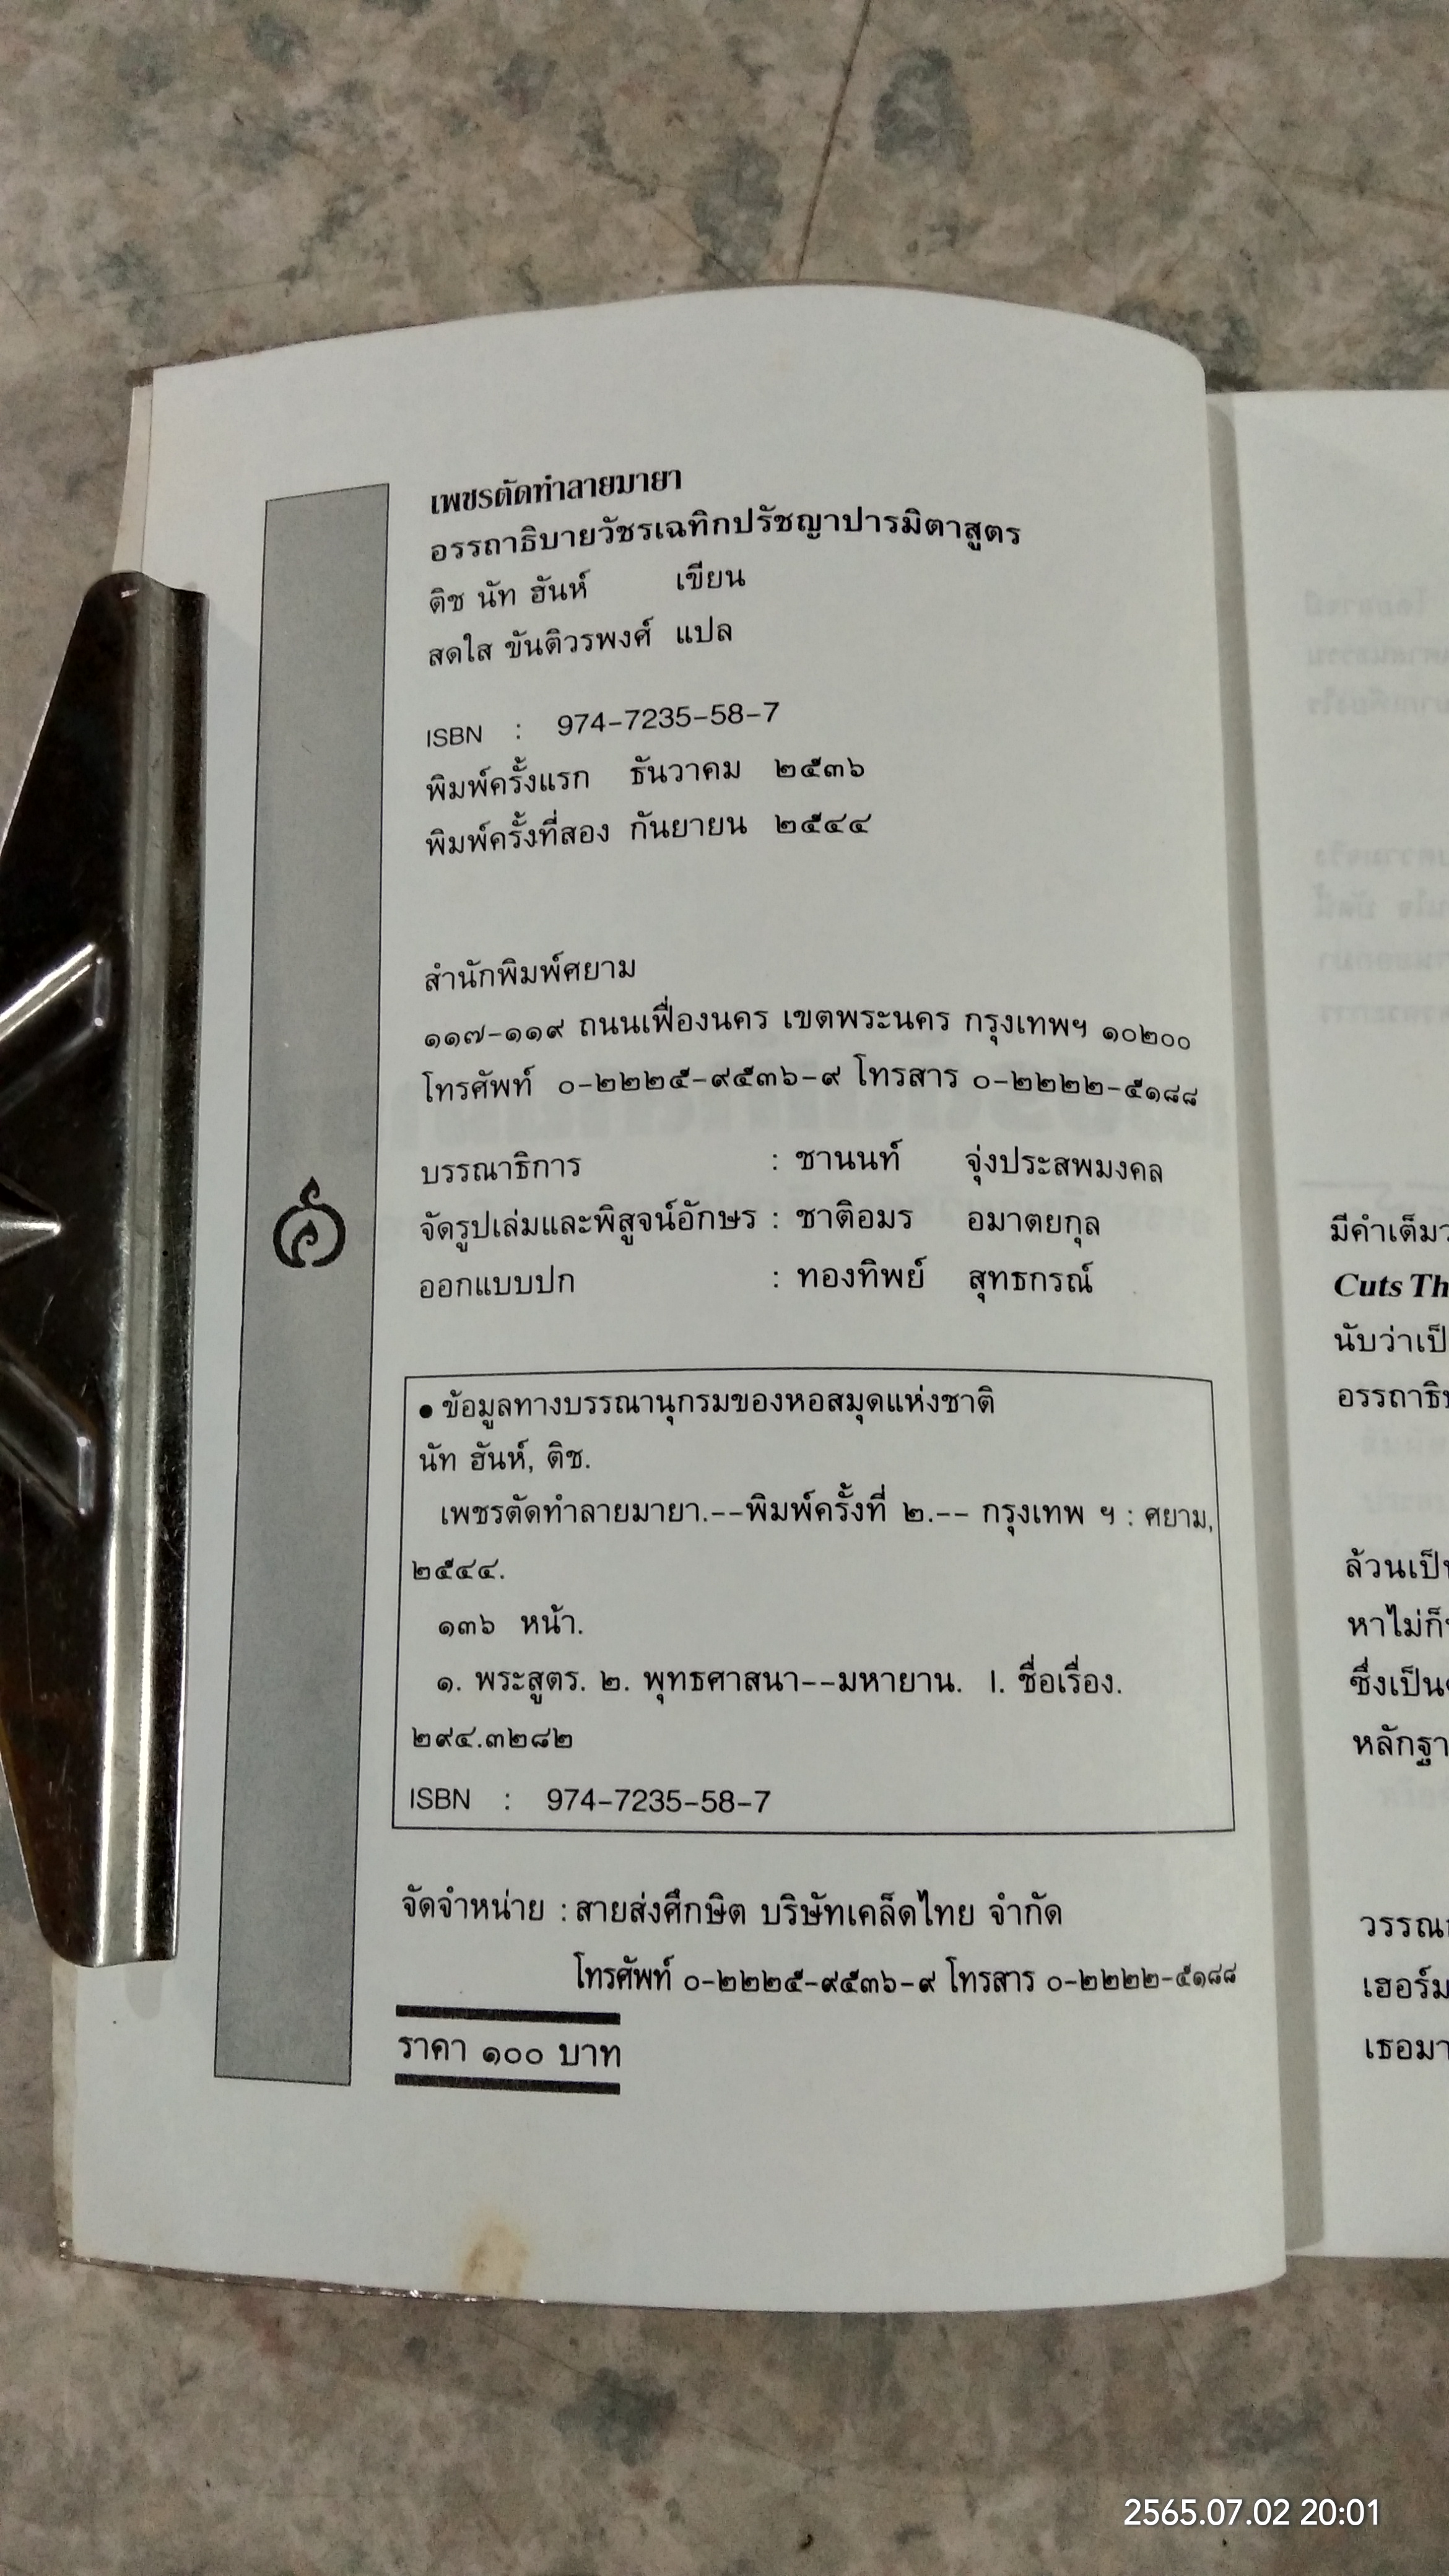 เพชรตัดทำลายมายา
อรรถาธิบายวัชรเฉทิกปรัชญาปารมิตาสูตร
ติช นัท ฮันห์ เขียน
สดใส ขันติวรพงศ์ แปล
ISBN : 974-7235-58-7
พิมพ์ครั้งแรก ธันวาคม ๒๕๓๖
พิมพ์ครั้งที่สอง กันยายน ๒๕๔๔
สำนักพิมพ์ศยาม
๑๑๗-๑๑๙ ถนนเฟื่องนคร เขตพระนคร กรุงเทพฯ ๑๐๒๐๐
โทรศัพท์ ๐-๒๒๒๕-๙๕๓๖-๙ โทรสาร ๐-๒๒๒๒-๕๑๘๘
บรรณาธิการ : ชานนท์ จุ่งประสพมงคล
จัดรูปเล่มและพิสูจน์อักษร : ชาติอมร อมาตยกุล
ออกแบบปก : ทองทิพย์ สุทธกรณ์
● ข้อมูลทางบรรณานุกรมของหอสมุดแห่งชาติ
นัท ฮันห์, ติช.
เพชรตัดทำลายมายา.--พิมพ์ครั้งที่ ๒.-- กรุงเทพ ฯ : ศยาม,
๒๕๔๔.
๑๓๖ หน้า.
๑. พระสูตร. ๒. พุทธศาสนา--มหายาน. I. ชื่อเรื่อง.
๒๙๔.๓๒๘๒
ISBN : 974-7235-58-7
จัดจำหน่าย : สายส่งศึกษิต บริษัทเคล็ดไทย จำกัด
โทรศัพท์ ๐-๒๒๒๕-๙๕๓๖-๙ โทรสาร ๐-๒๒๒๒-๕๑๘๘
ราคา ๑๐๐ บาท
มีคำเต็ม
Cuts Th
นับว่าเป็
อรรถาธิ
ล้วนเป็
หาไม่ก็
ซึ่งเป็น
หลักฐา
วรรณ
เฮอร์ม
เธอมา
2565.07.02 20:01